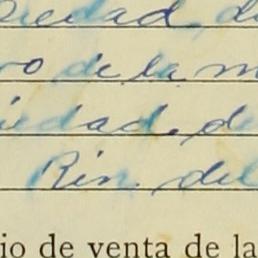 piedad de
ro de la m
iedad de
Rin. del
io de venta de la